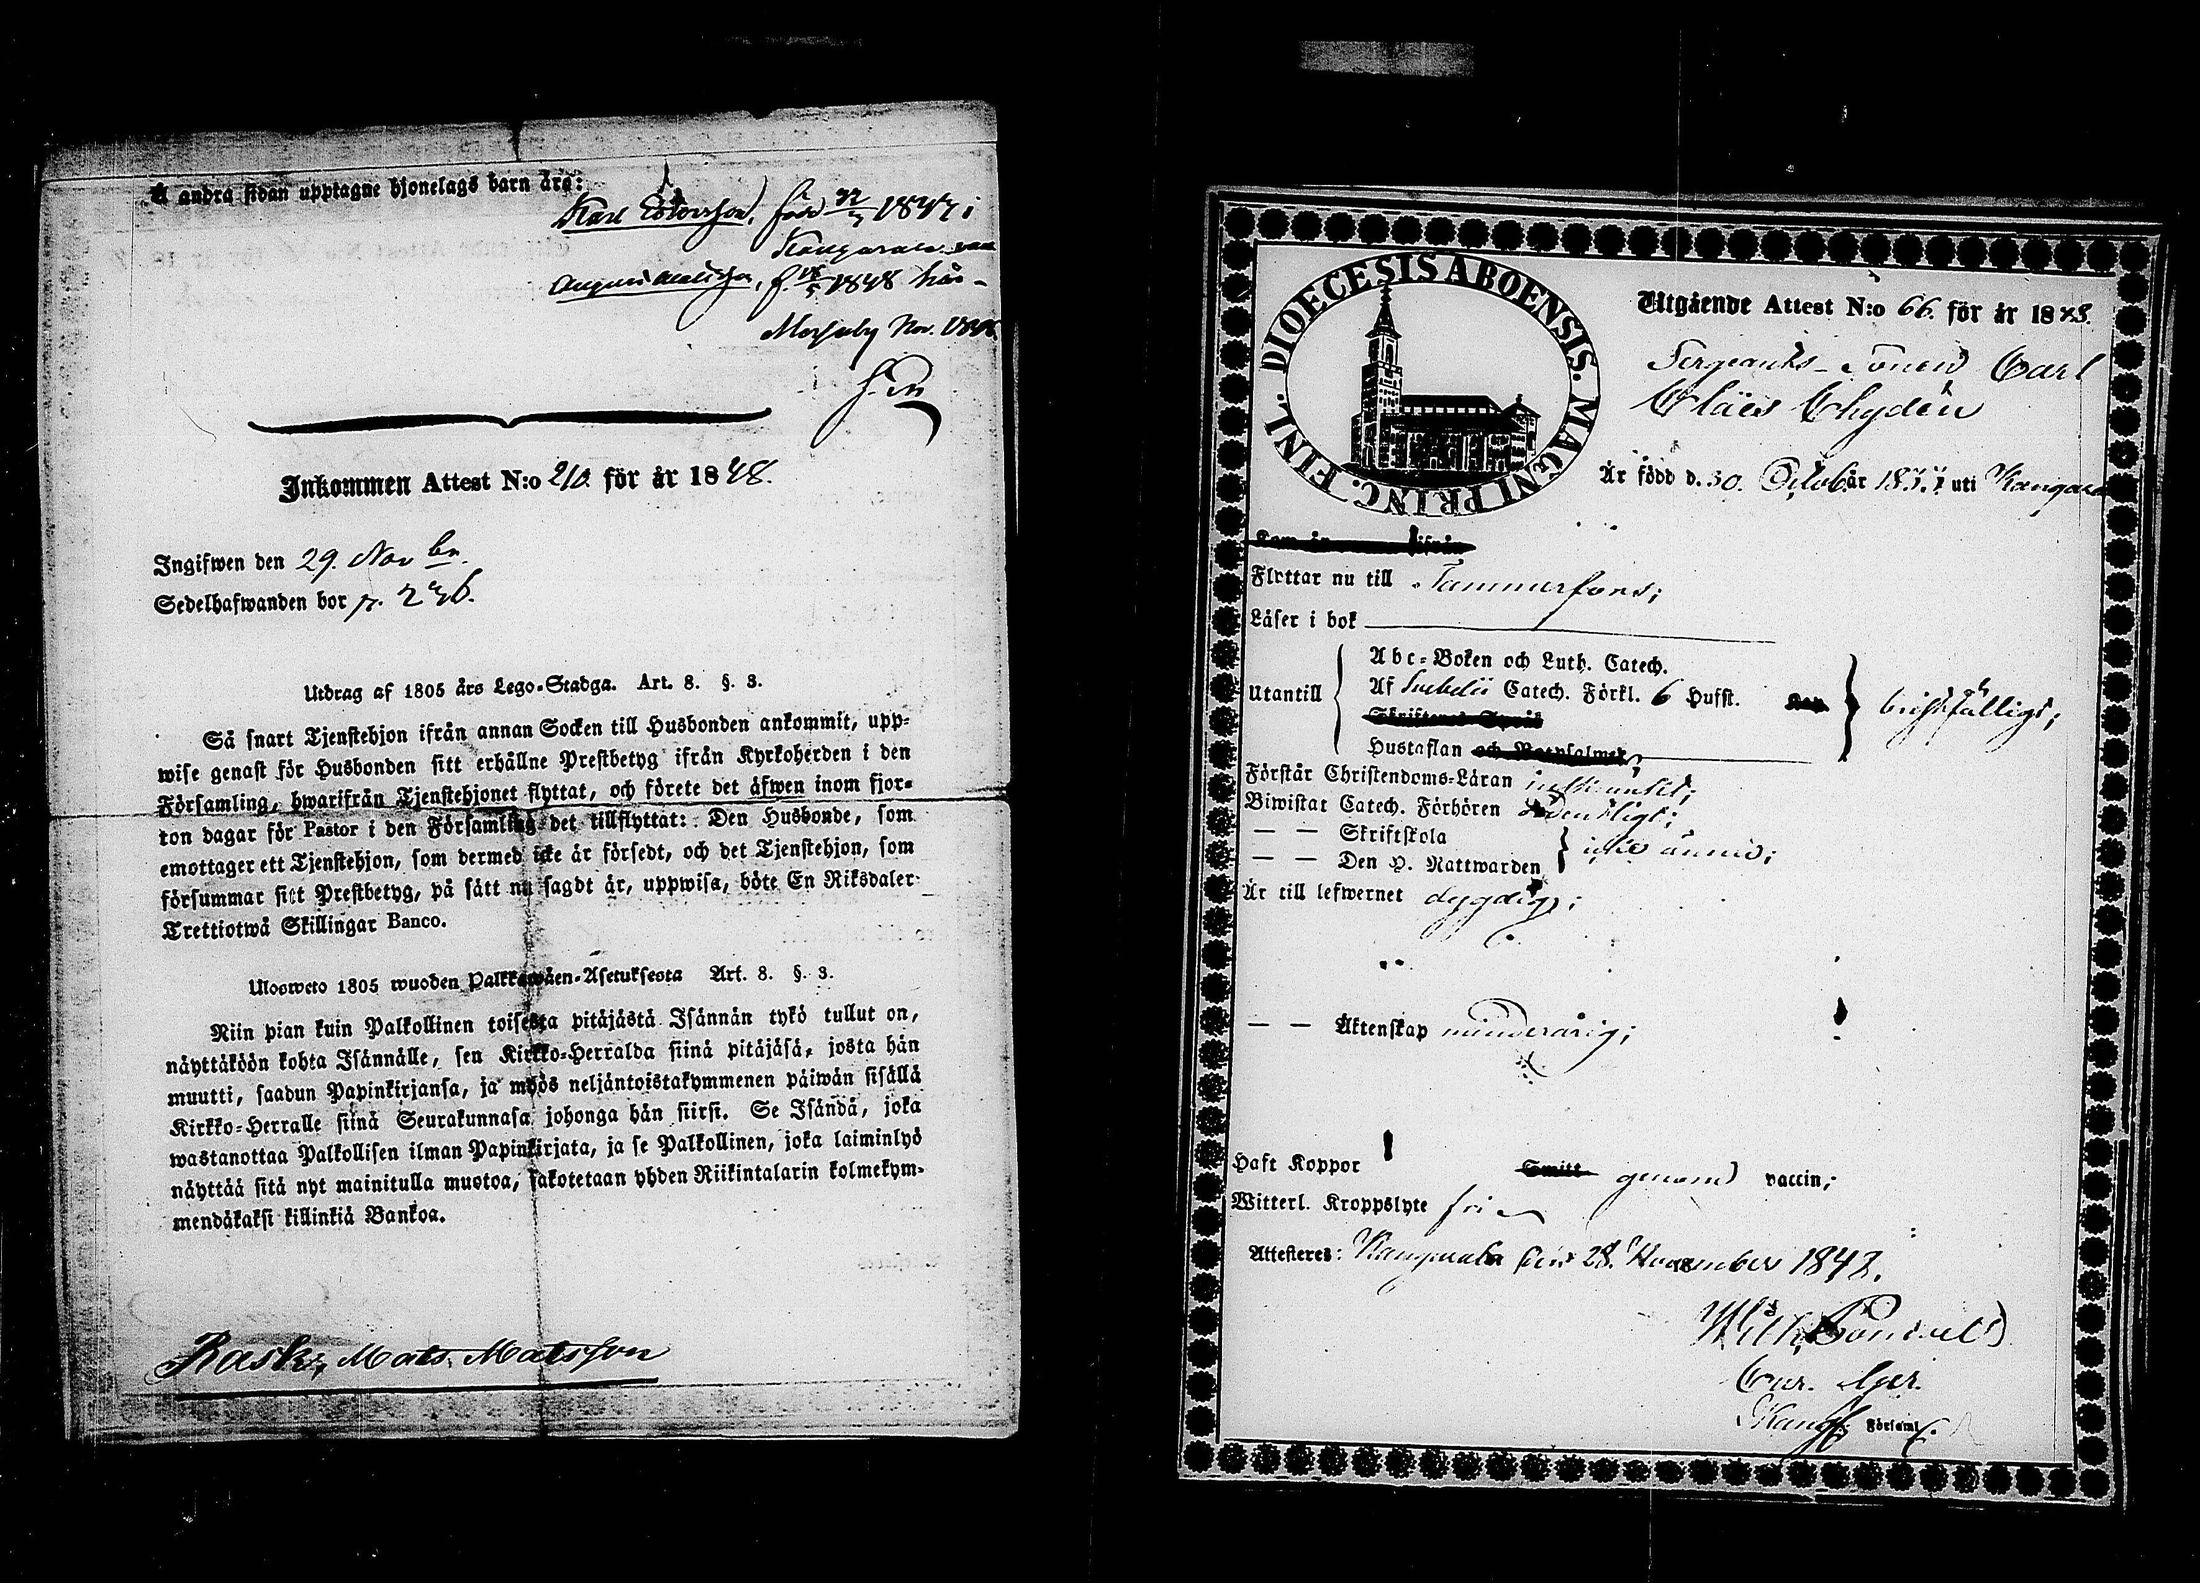 Å andra sidan upptagne hjonelags barn äro:
Karl född 1847 i
Kangasala
f. 1848 här
Messuby Nov. 1848.
Inkommen Attest N:o 210. för år 1848.
Ingifwen den 29. Novbr.
Sedelhafwanden bor p. 236.
Utdrag af 1805 års Lego-Stadga. Art. 8. §. 3.
Så snart Tjenstehjon ifrån annan Socken till Husbonden ankommit, upp-
wise genast för Husbonden sitt erhållne Prestbetyg ifrån Kyrkoherden i den
Församling, hwarifrån Tjenstehjonet flyttat, och förete det äfwen inom fjor-
ton dagar för Pastor i den Församling det tillflyttat: Den Husbonde, som
emottager ett Tjenstehjon, som dermed icke är försedt, och det Tjenstehjon, som
försummar sitt Prestbetyg, på sätt nu sagdt är, uppwisa, böte En Riksdaler
Trettiotwå Skillingar Banco.
Ulosweto 1805 wuoden Palkkawäen-Asetuksesta Art. 8. §. 3.
Niin pian kuin Palkollinen toisesta pitäjästä Isännän tykö tullut on,
näyttäköön kohta Isännälle, sen Kirkko-Herralda siinä pitäjäsä, josta hän
muutti, saadun Papinkirjansa, ja myös neljäntoistakymmenen päiwän sisällä
Kirkko-Herralle siinä Seurakunnasa johonga hän siirsi. Se Isändä, joka
wastanottaa Palkollisen ilman Papinkirjata, ja se Palkollinen, joka laiminlyö
näyttää sitä nyt mainitulla muotoa, sakotetaan yhden Riikintalarin kolmekym-
mendäkaksi killinkiä Bankoa.
Rask, Mats Matsson
DIOECESIS ABOENSIS. MAGNI PRINC. FINL.
Utgående Attest N:o 66. för år 1848.
Sergeants-Sonen Carl
Claës Chydén
Är född d. 30. Octob. år 18 uti Kangasa
Kom år ifrån
Flyttar nu till Tammerfors;
Läser i bok
Utantill
Abc-Boken och Luth. Catech.
Af Svebelii Catech. Förkl. 6 Hufst.
Skriftenes Språk
Hustaflan och Botpsalmer
bristfälligt;
Förstår Christendoms-Läran
Biwistat Catech. Förhören ordentligt;
— — Skriftskola
— — Den H. Nattwarden
icke ännu;
Är till lefwernet dygdig;
— — Äktenskap minderårig;
Haft Koppor Smitt genom vaccin;
Witterl. Kroppslyte fri
Attesteres: Kangasala den 28. November 1848.
Cur. Ager.
Kang. Församl.